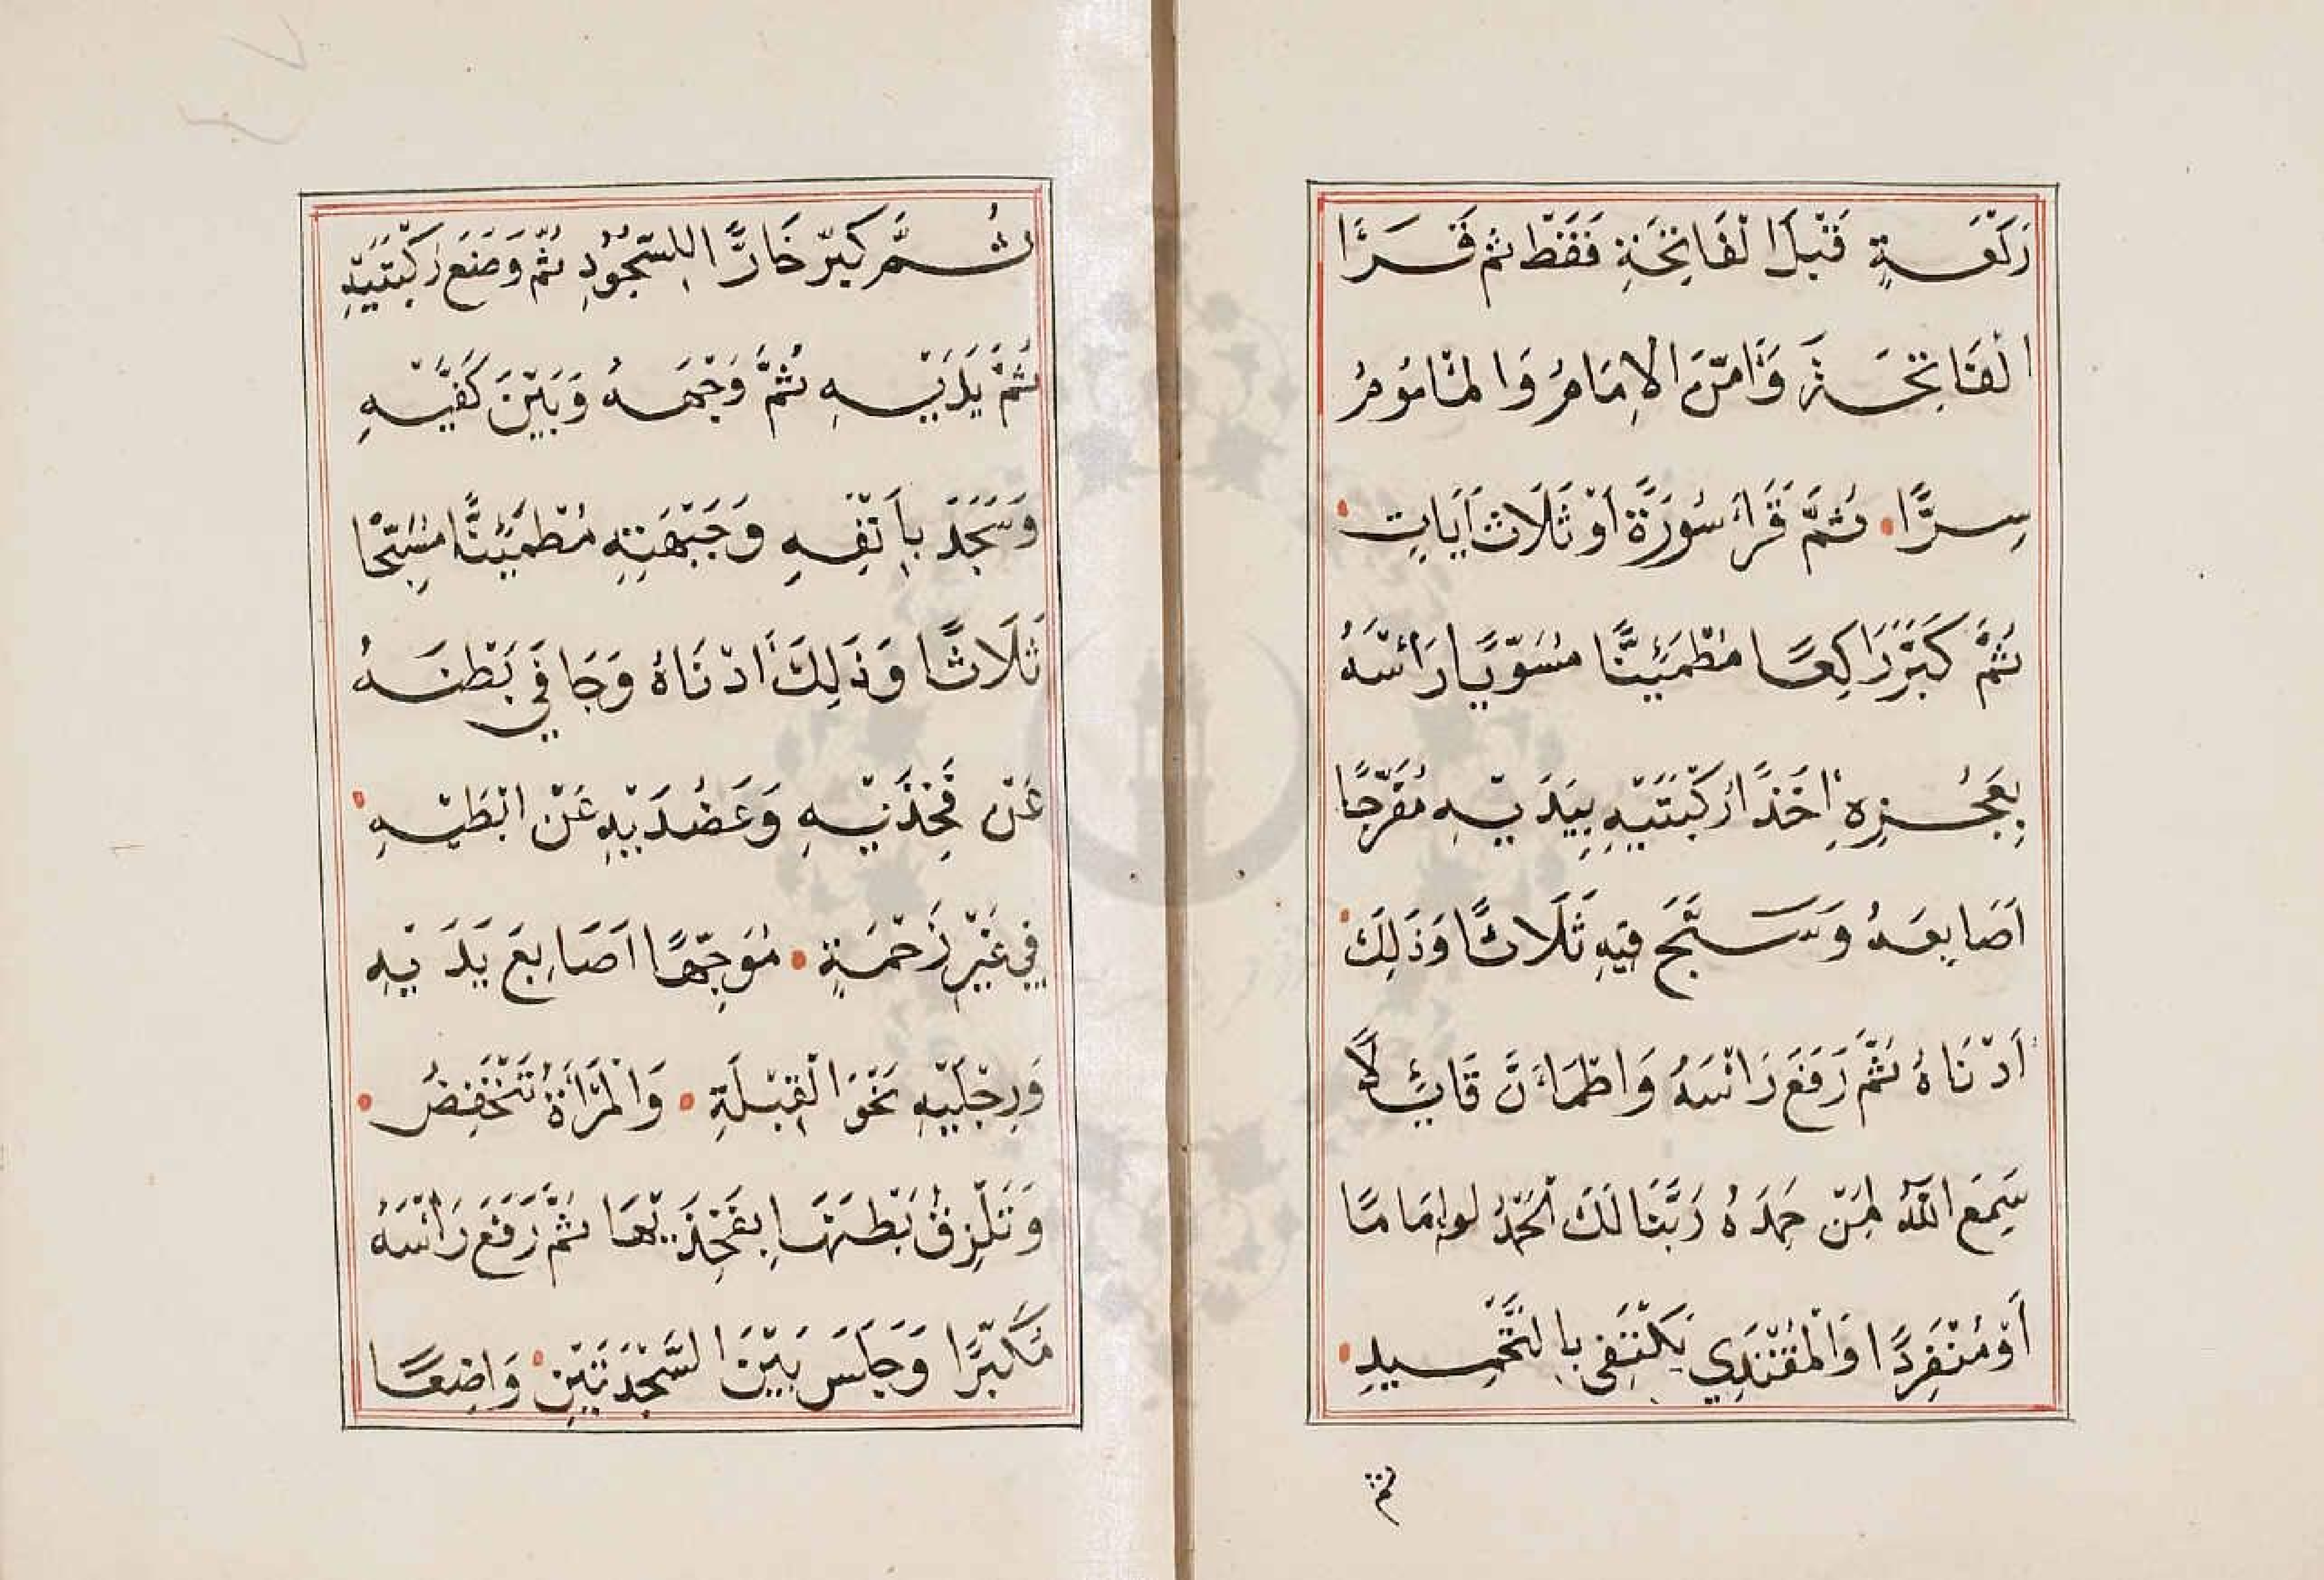 رَكْعَةٍ قَبْلَ الْفَاتِحَةِ فَقَطْ ثُمَّ قَرَأَ
الْفَاتِحَةَ وَأَمَّنَ الْإِمَامُ وَالْمَأْمُومُ
سِرًّا ثُمَّ قَرَأَ سُورَةً أَوْ ثَلَاثَ آيَاتٍ
ثُمَّ كَبَّرَ رَاكِعًا مُطْمَئِنًّا مُسَوِّيًا رَأْسَهُ
بِعَجُزِهِ اٰخِذًا رُكْبَتَيْهِ بِيَدَيْهِ مُفَرِّجًا
اَصَابِعَهُ وَسَبَّحَ فِيهِ ثَلَاثًا وَذٰلِكَ
اَدْنَاهُ ثُمَّ رَفَعَ رَاْسَهُ وَاطْمَاَنَّ قَائِلًا
سَمِعَ اللّٰهُ لِمَنْ حَمِدَهُ رَبَّنَا لَكَ الْحَمْدُ لو اِمَامًا
اَوْ مُنْفَرِدًا وَالْمُقْتَدِي يَكْتَفِى بِالتَّحْمِيدِ
ثم
ثُمَّ كَبَّرَ خَارًّا لِلسُّجُودِ ثُمَّ وَضَعَ رُكْبَتَيْهِ
ثُمَّ يَدَيْهِ ثُمَّ وَجْهَهُ وَبَيْنَ كَفَّيْهِ
وَسَجَدَ بِاَنْفِهِ وَجَبْهَتِهِ مُطْمَئِنًّا مُسَبِّحًا
ثَلَاثًا وَذٰلِكَ اَدْنَاهُ وَجَافَي بَطْنَهُ
عَنْ فَخِذَيْهِ وَعَضُدَيْهِ عَنْ اِبْطَيْهِ
فِي غَيْرِ زَحْمَةٍ مُوَجِّهًا اَصَابِعَ يَدَيْهِ
وَرِجْلَيْهِ نَحْوَ الْقِبْلَةِ وَالْمَرْاَةُ تَنْخَفِضُ
وَتُلْزِقُ بَطْنَهَا بِفَخِذَيْهَا ثُمَّ رَفَعَ رَاْسَهُ
مُكَبِّرًا وَجَلَسَ بَيْنَ السَّجْدَتَيْنِ وَاضِعًا